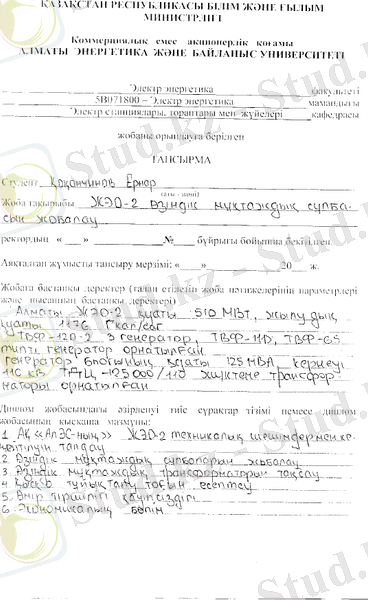 ҚАЗАҚСТАН РЕСПУБЛИКАСЫ БІЛІМ ЖӘНЕ ҒЫЛЫМ
МИНИСТРЛІГІ
Коммерциялық емес акционерлік қоғамы
АЛМАТЫ ЭНЕРГЕТИКА ЖӘНЕ БАЙЛАНЫС УНИВЕРСИТЕТІ
Электр энергетика факультеті
5В071800 – Электр энергетика мамандығы
Электр станциялары, тораптары мен жүйелері кафедрасы
жобаны орындауға берілген
ТАПСЫРМА
Студент Ернар
(аты - жөні)
Жоба тақырыбы ЖЭО-2 өзіндік мұқтаждық сұлба-
сын жобалау
ректордың « » № бұйрығы бойынша бекітілген.
Аяқталған жұмысты тапсыру мерзімі: « » 20 ж.
Жобаға бастапқы деректер (талап етілетін жоба нәтижелерінің параметрлері
және нысанның бастапқы деректері)
Алматы ЖЭО-2 қуаты 510 МВт, жылу дық
қуаты 1176 Гкал/сағ
3 генератор, ТВФ-
типті генератор орнатылған
генератор қуаты 125 МВА, кернеуі
110 кВ ТДЦ -125000/110 трансфор
наторы орнатылған
Диплом жобасындағы әзірленуі тиіс сұрақтар тізімі немесе диплом
жобасының қысқаша мазмұны:
1 Ақ «АлЭС-ның» ЖЭО-2 техникалық
талдау
2 Өзіндік мұқтаждық сұлбаларын жобалау
3 Өзіндік мұқтаждық трансформаторын таңдау
4 Қысқа тұйықталу тоғын есептеу
5 Өмір тіршілігі қауіпсіздігі
6 Экономикалық бөлім
Stud.kz
Stud.kz
Stud.kz